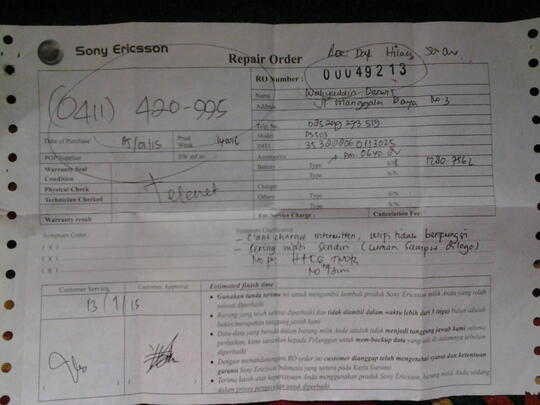 Sony Ericsson
Repair Order
RO Number :
00049213
(0411) 420-995
Name
Address
Jl Manggala Raya No.3
Telp. No
Date of Purchase
05/01/15
Prod.
Week
Model
IMEI
POP Supplier
SW ref.no
Accessories
Warranty Seal
Condition
Battery
Type
S/N
Physical Check
Charger
Type
S/N
Technician Checked
Telenet
Others
Type
S/N
Type
S/N
Warranty result
Est. Service Charge :
Cancelation Fee:
Symptom Codes :
Symptom Clarification
( X )
( X )
( X )
- Cant charge intermitten, wifi tidak berfungsi
- Sering mati sendiri
Customer Service
Customer Approval
Estimated finish time :
13/1/15
• Gunakan tanda terima ini untuk mengambil kembali produk Sony Ericsson milik Anda yang telah
selesai diperbaiki
• Barang yang telah selesai diperbaiki dan tidak diambil dalam waktu lebih dari 3 (tiga) bulan adalah
bukan merupakan tanggung jawab kami
• Data-data yang berada dalam barang milik Anda adalah tidak menjadi tanggung jawab kami selama
perbaikan, kami sarankan kepada Pelanggan untuk mem-backup data yang ada di dalamnya sebelum
diperbaiki
• Dengan menandatangani RO order ini customer dianggap telah mengetahui syarat dan ketentuan
garansi Sony Ericsson Indonesia yang tertera pada Kartu Garansi
• Terima kasih atas kepercayaan Anda menggunakan produk Sony Ericsson, barang milik Anda sedang
dalam proses pengecekan untuk diperbaiki.